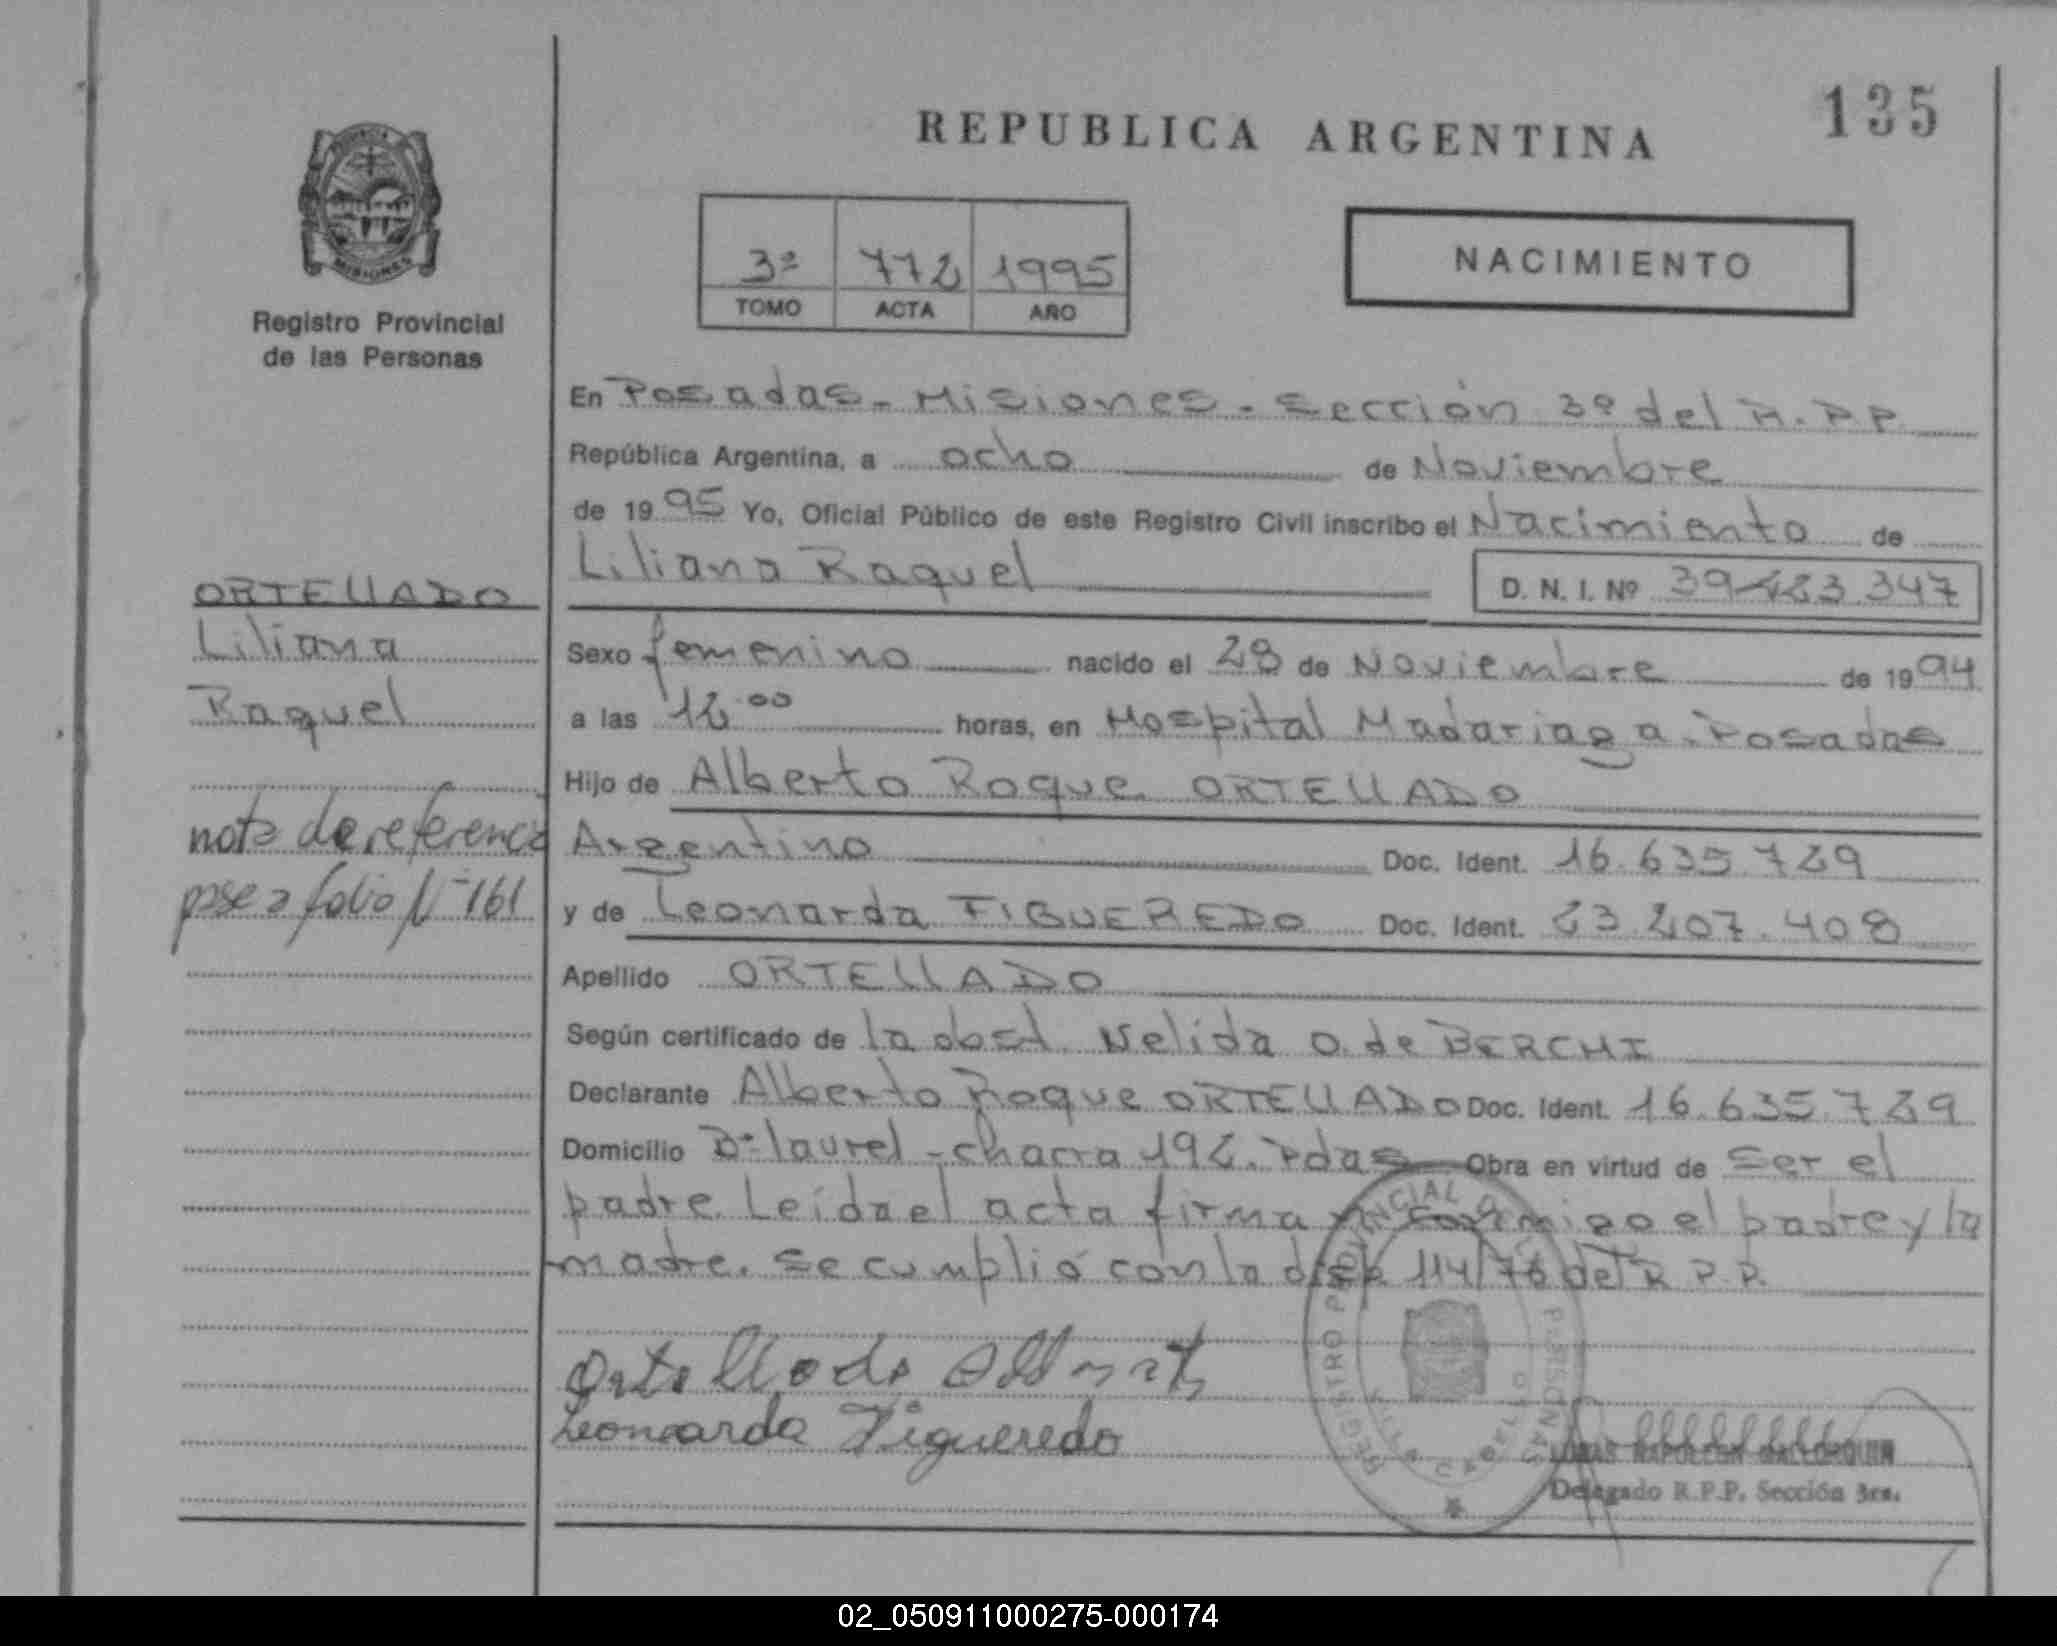 135
REPUBLICA ARGENTINA
PROVINCIA
MISIONES
Registro Provincial
de las Personas
3º 772 1995
TOMO ACTA AÑO
NACIMIENTO
En Posadas - Misiones - Sección 3º del R.P.P.
República Argentina, a ocho de Noviembre
de 1995 Yo, Oficial Público de este Registro Civil inscribo el Nacimiento de
Liliana Raquel D. N. I. Nº 39.423.347
ORTELLADO
Liliana
Raquel
nota de referencia
pase a folio Nº 161
Sexo femenino nacido el 28 de Noviembre de 1994
a las 12:00 horas, en Hospital Madariaga. Posadas
Hijo de Alberto Roque ORTELLADO
Argentino Doc. Ident. 16.635.729
y de Leonarda FIGUEREDO Doc. Ident. 23.207.408
Apellido ORTELLADO
Según certificado de la obst. Nelida O. de BERCHI
Declarante Alberto Roque ORTELLADO Doc. Ident. 16.635.729
Domicilio Bº laurel - chacra 192. Pdas Obra en virtud de ser el
padre. Leída el acta firman conmigo el padre y la
madre. Se cumplió con la disp. 114/76 del R.P.P.
Ortellado Albert
Leonarda Figueredo
REGISTRO PROVINCIAL DE LAS PERSONAS
LUCAS NAPOLEON MALLORQUIN
Delegado R.P.P. Sección 3ra.
02_050911000275-000174